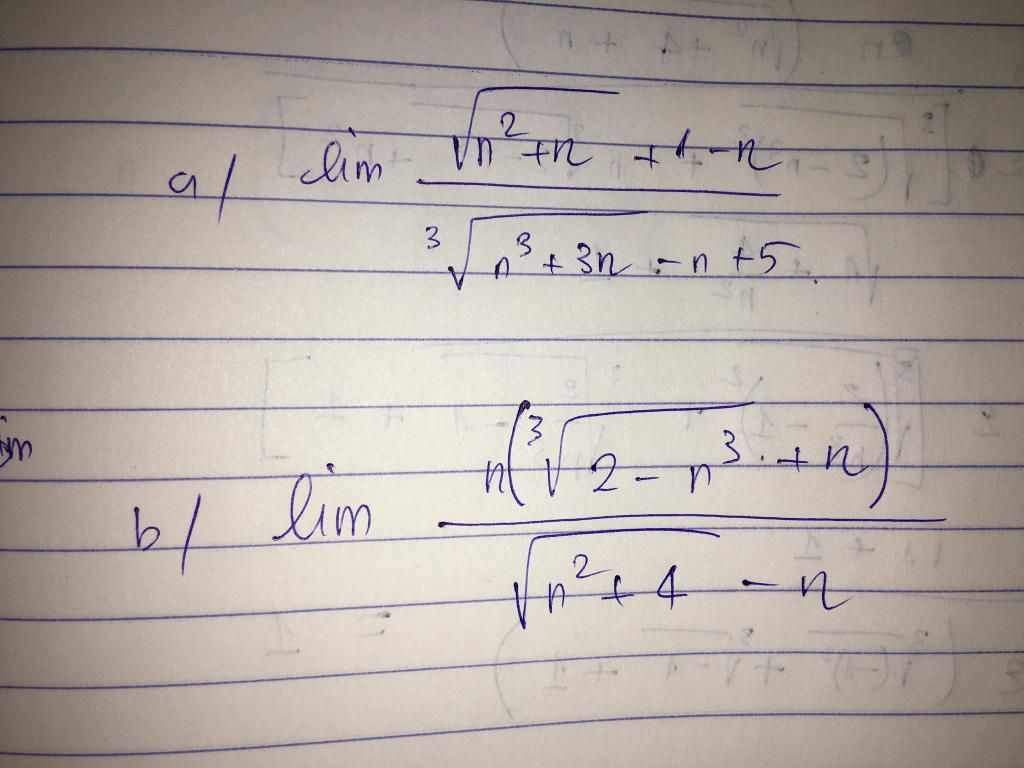 a/ lim (√(n²+n) + 1 - n) / (³√(n³ + 3n) - n + 5)
b/ lim n(³√(2 - n³) + n) / (√(n² + 4) - n)